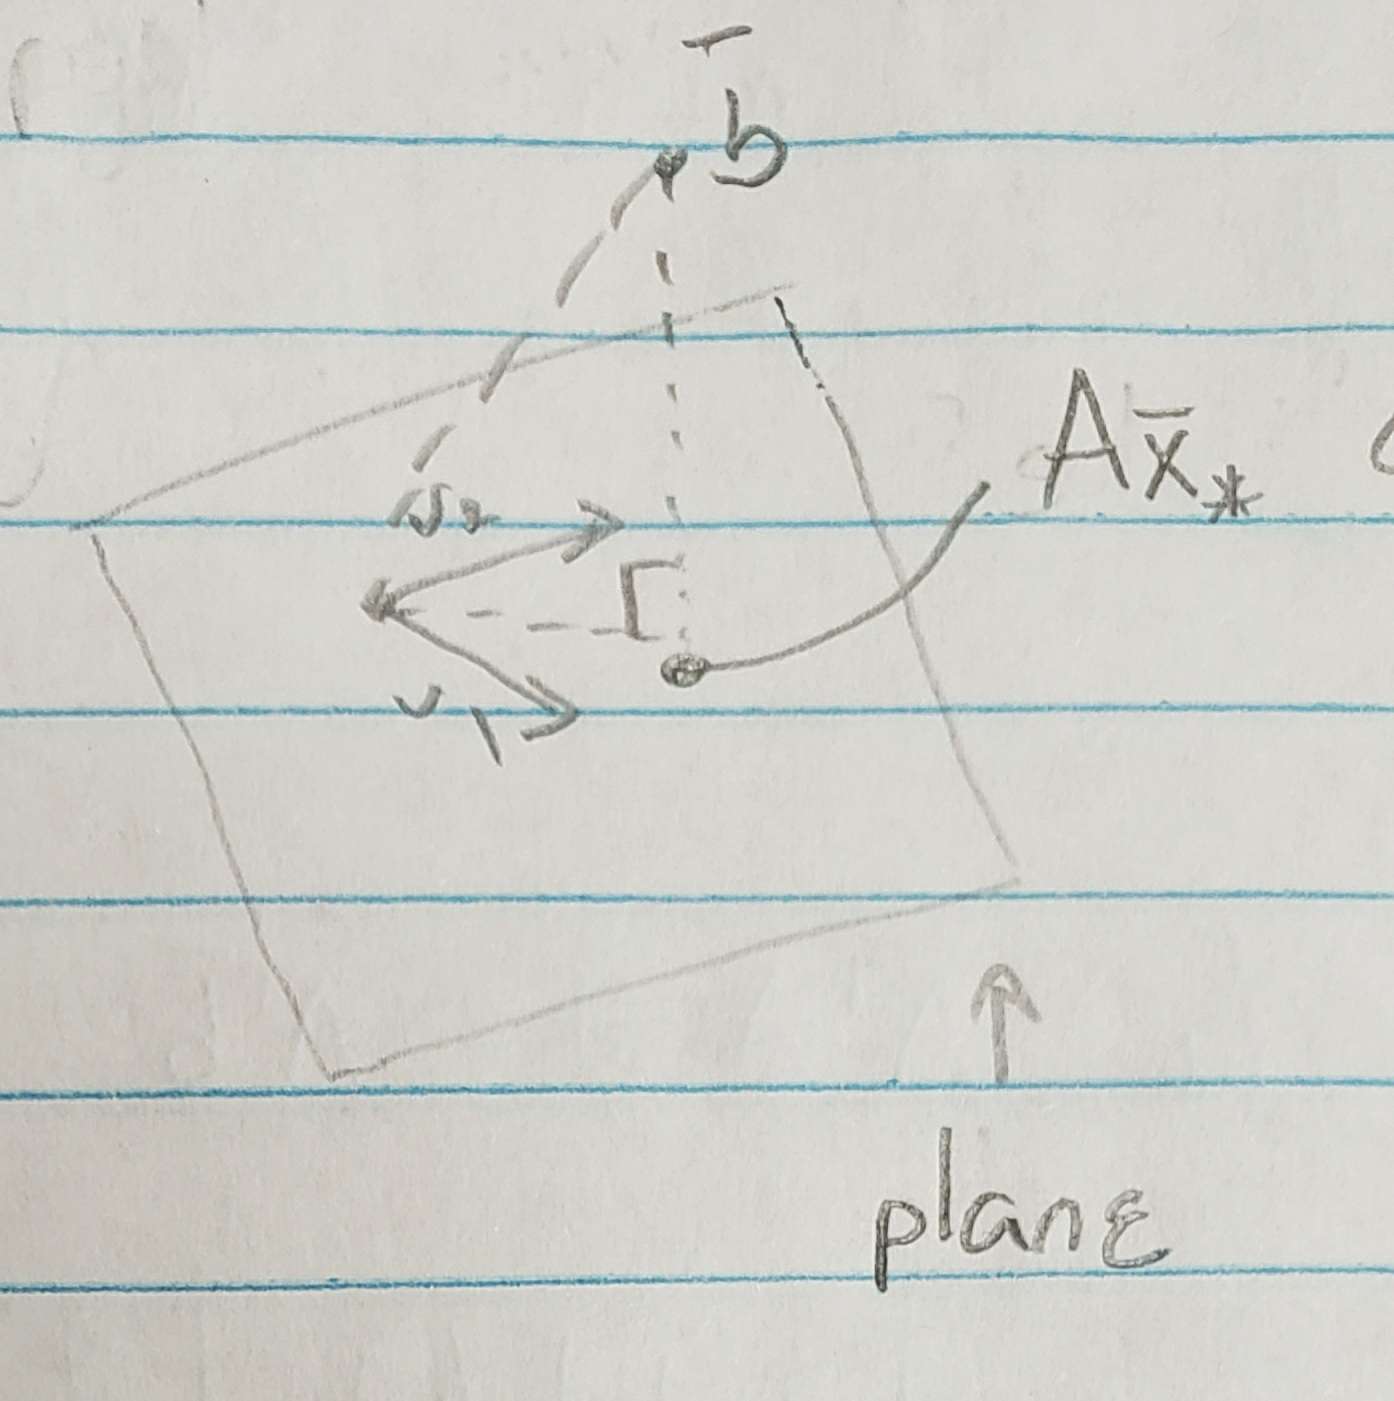 b̄
Ax̄*
v₂
v₁
plane